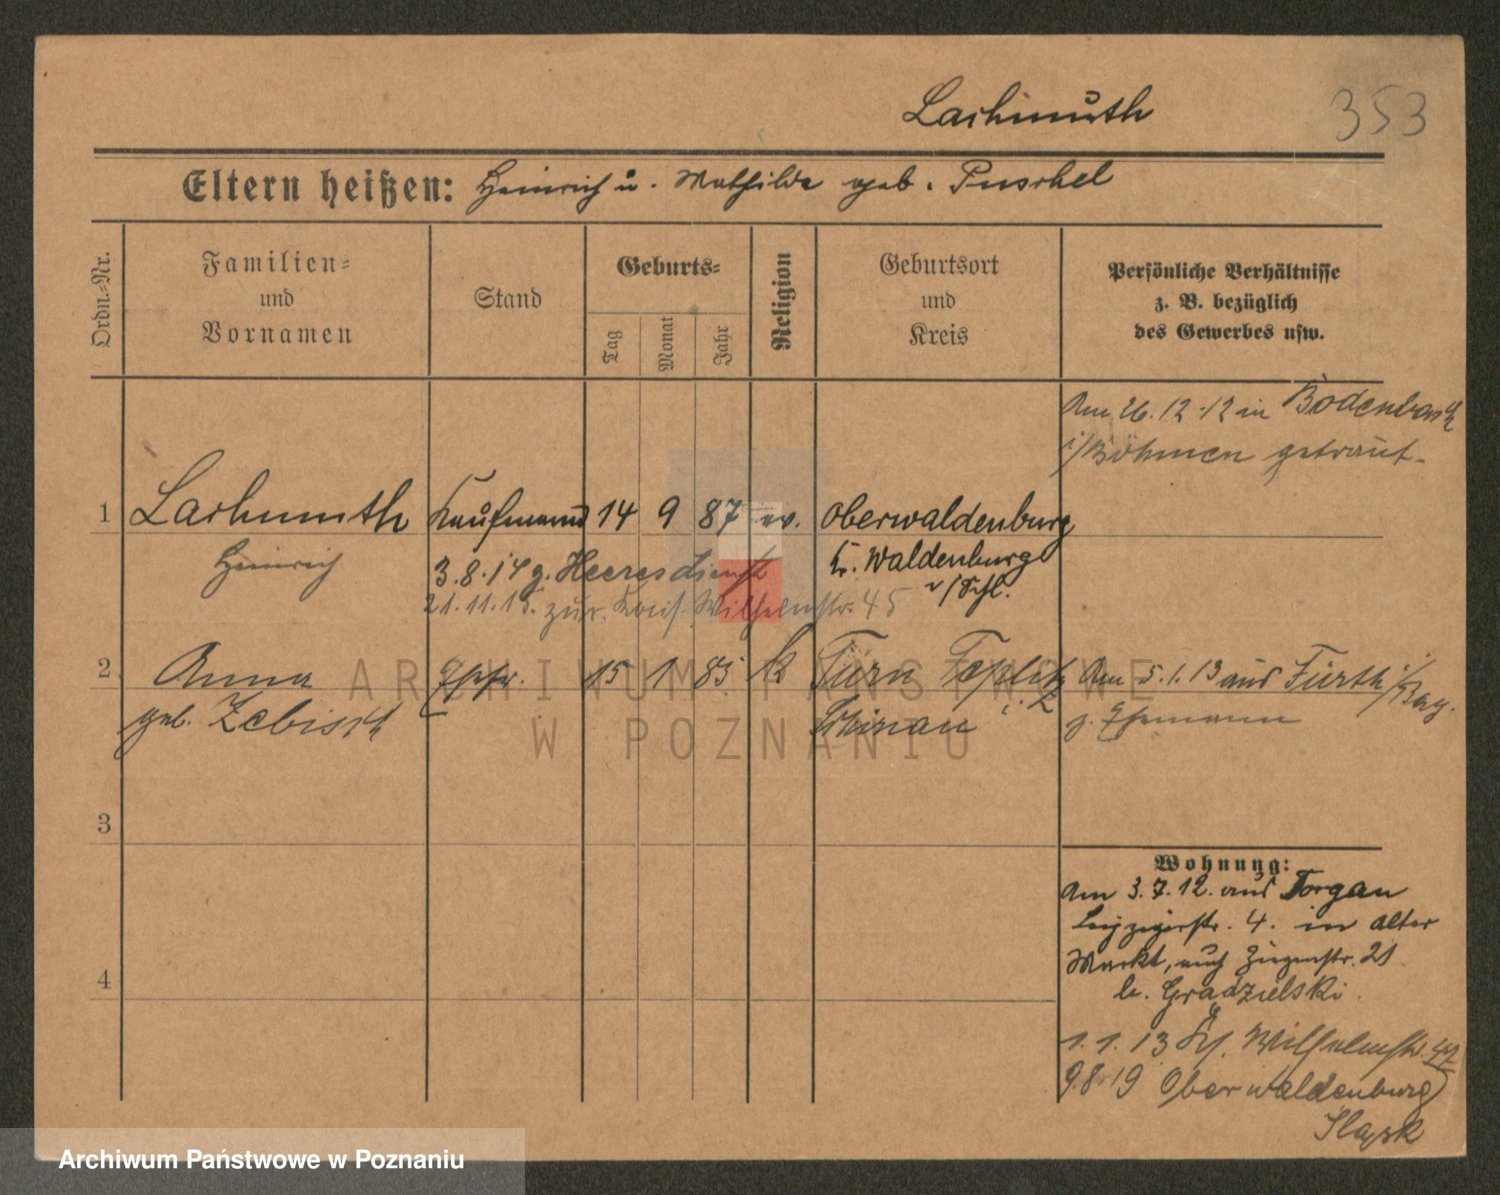 Lachmuth
353
Eltern heißen: Heinrich u. Mathilde geb. Puschel
Ordn.-Nr.
Familien-
und
Vornamen
Stand
Geburts-
Tag
Monat
Jahr
Religion
Geburtsort
und
Kreis
Persönliche Verhältnisse
z. B. bezüglich
des Gewerbes usw.
Am 26.12.12 in Bodenbach
i/Böhmen getraut.
1 Lachmuth Kaufmann 14 9 87 ev. Oberwaldenburg
Heinrich 3.8.14 z. Heeresdienst Kr. Waldenburg
i/Schl.
21.11.15. zur. Wilhelmstr. 45
2 Anna Ehefr. 15 1 85 k Turn Teplitz Am 5.1.13 aus Fürth i/Bay.
geb. Zebisch Schönau z. Ehemann
3
4
Wohnung:
Am 3.7.12. aus Torgau
Leipzigerstr. 4. in Alter
Markt, auch Ziegenstr. 21
b. Gradzielski.
1.1.13 Wilhelmstr.
9.8.19 Oberwaldenburg
Śląsk
ARCHIWUM PAŃSTWOWE
W POZNANIU
Archiwum Państwowe w Poznaniu